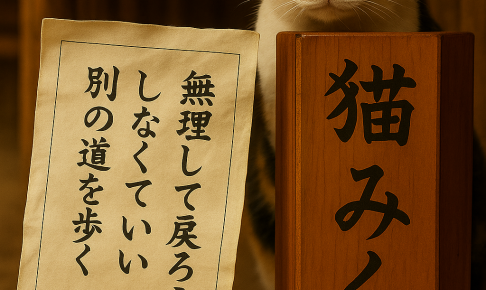 無理して戻ろ
しなくていい
別の道を歩く
猫み